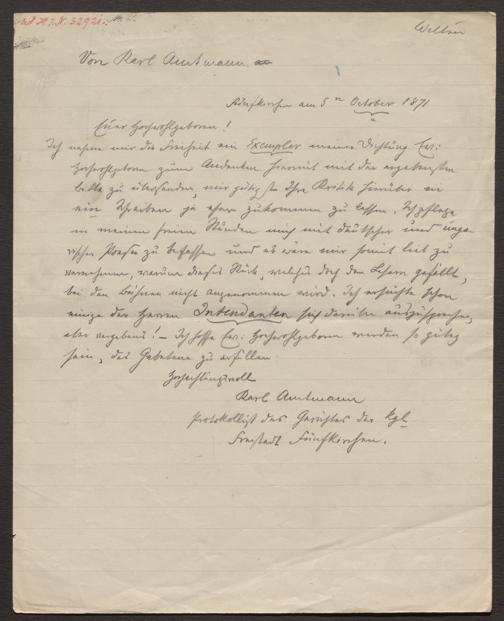 Weltin
Von Karl Amtmann
Fünfkirchen am 5n October 1871
Euer Hochwohlgeboren!
Ich nehme mir die Freiheit ein Exemplar meiner Dichtung Ew:
Hochwohlgeboren zum Andenken hiermit mit der ergebensten
Bitte zu übersenden, mir gütigst Ihre Kritik hierüber in
ein Schreiben ja eher zukommen zu lassen. Ich pflege
in meinen freien Stunden mich mit deutscher und unga-
rischer Poesie zu befassen und es wäre mir somit lieb zu
vernehmen, warum dieses Stück, welches doch den Lesern gefällt,
bei den Bühnen nicht angenommen wird. Ich ersuchte schon
einige der Herren Intendanten sich darüber auszusprechen,
aber vergebens! – Ich hoffe Ew: Hochwohlgeboren werden so gütig
sein, das Gebetene zu erfüllen
Hochachtungsvoll
Karl Amtmann
Protokollist des Gerichtes der kgl.
Freistadt Fünfkirchen.